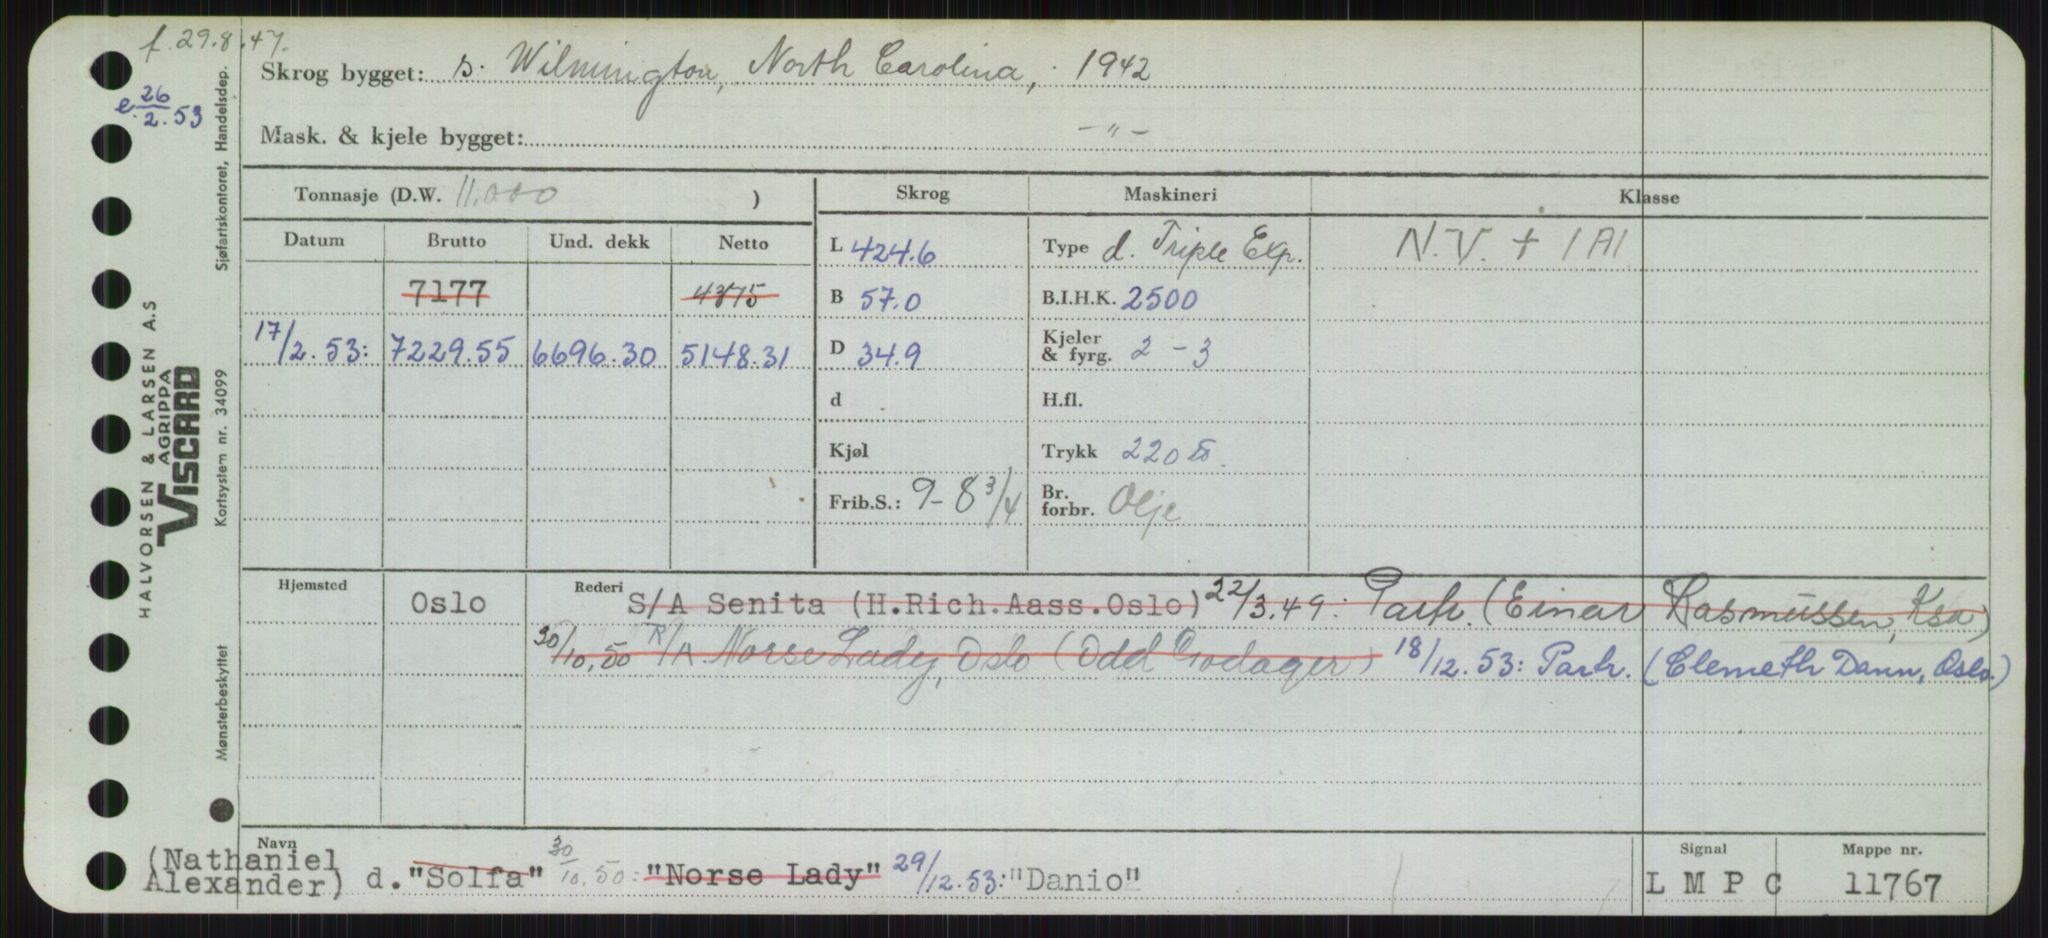 f. 29.8.47.
e. 26/2.53
Skrog bygget: s. Wilmington, North Carolina, 1942
Mask. & kjele bygget: -"-
Tonnasje (D.W. 11.000 )
Skrog Maskineri Klasse
Datum Brutto Und. dekk Netto
L 424.6 Type d. Triple Exp. N.V. + 1A1
7177 4375
B 57.0 B.I.H.K. 2500
17/2.53: 7229.55 6696.30 5148.31
D 34.9 Kjeler & fyrg. 2 - 3
d H.fl.
Kjøl Trykk 220
Frib.S.: 9-8 3/4 Br. forbr. Olje
Hjemsted Oslo Rederi S/A Senita (H.Rich.Aass.Oslo) 22/3.49: Partr. (Einar Rasmussen, Ksa)
30/10.50 A. Norse Lady, Oslo (Odd Godager) 18/12.53: Partr. (Clemeth Dann, Oslo.)
Navn Signal Mappe nr.
(Nathaniel Alexander) d. "Solfa" 30/10.50: "Norse Lady" 29/12.53: "Danio" L M P C 11767
Sjøfartskontoret, Handelsdep.
HALVORSEN & LARSEN A.S
AGRIPPA
VISCARD
Kortsystem nr. 34099
Mønsterbeskyttet